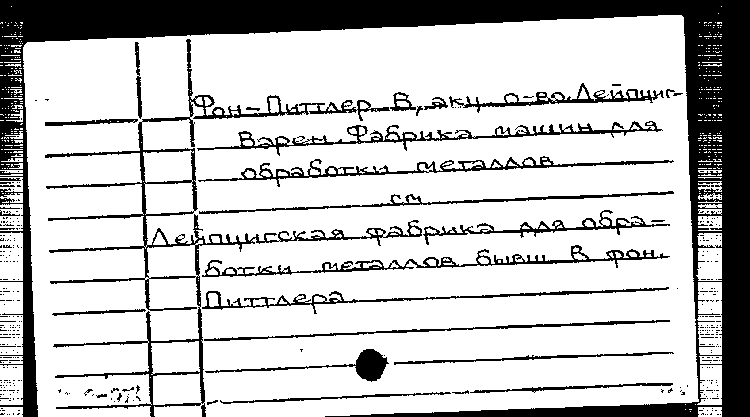 Фон-Питтлер В, акц о-во. Лейпциг-
Варен. Фабрика машин для
обработки металлов
см
Лейпцигская фабрика для обра=
ботки металлов бывш В фон.
Питтлера.